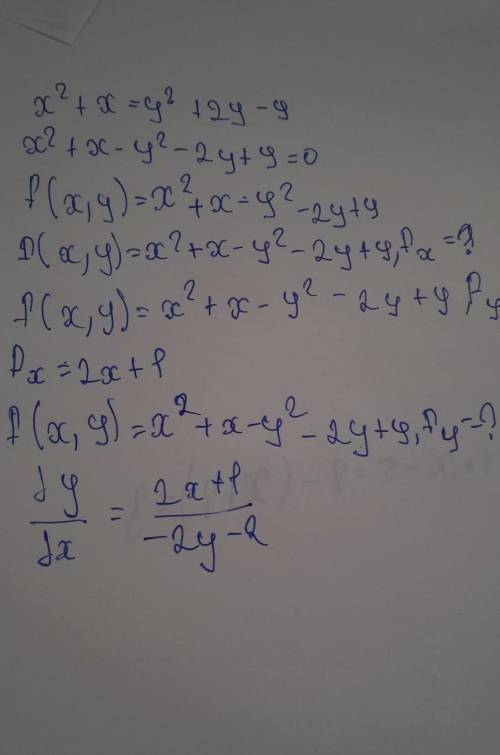 x² + x = y² + 2y - y
x² + x - y² - 2y + y = 0
f(x, y) = x² + x - y² - 2y + y
f(x, y) = x² + x - y² - 2y + y, fx = ?
f(x, y) = x² + x - y² - 2y + y, fy
fx = 2x + 1
f(x, y) = x² + x - y² - 2y + y, fy = ?
dy/dx = (2x + 1)/(-2y - 2)